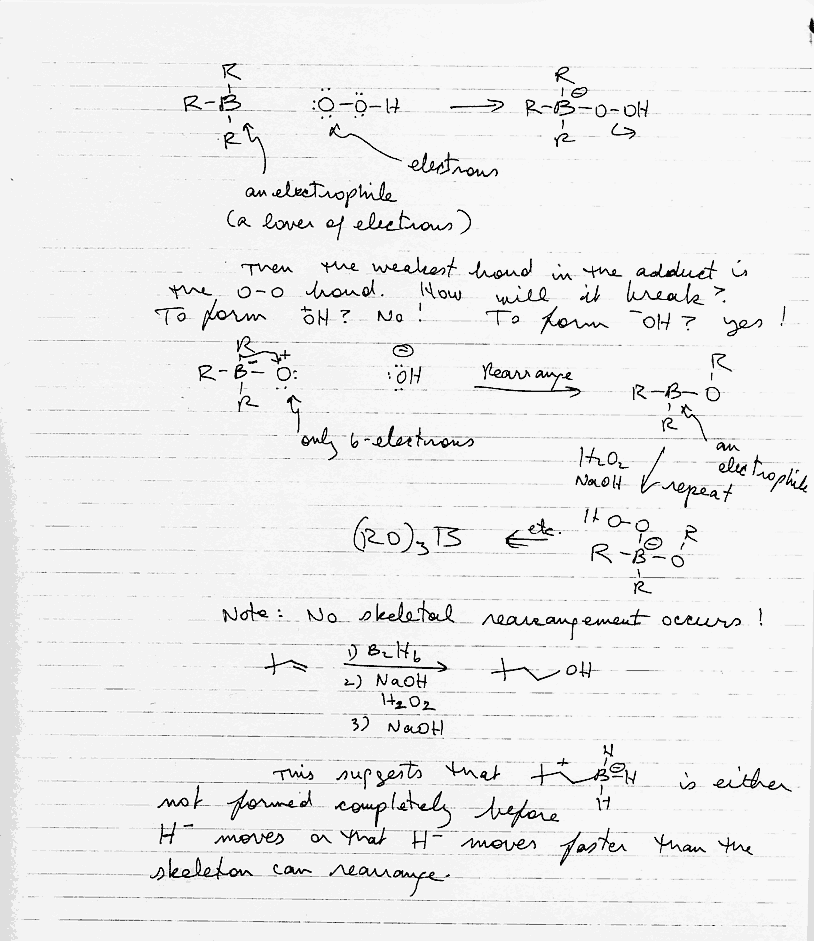 R
R-B :Ö-Ö-H ⟶ R-B⊖-O-OH
R R
R
electrons
an electrophile
(a lover of electrons)
Then the weakest bond in the adduct is
the O-O bond. How will it break?
To form ⁺OH? No! To form ⁻OH? yes!
R + ⊖ R
R-B⁻-O: :ÖH Rearrange R-B-O
R R
only 6-electrons an
electrophile
H₂O₂
NaOH repeat
HO-O R
(RO)₃B etc. R-B⊖-O
R
Note: No skeletal rearrangement occurs!
1) B₂H₆
OH
2) NaOH
H₂O₂
3) NaOH
H
This suggests that + B⊖H is either
H
not formed completely before
H⁻ moves or that H⁻ moves faster than the
skeleton can rearrange.